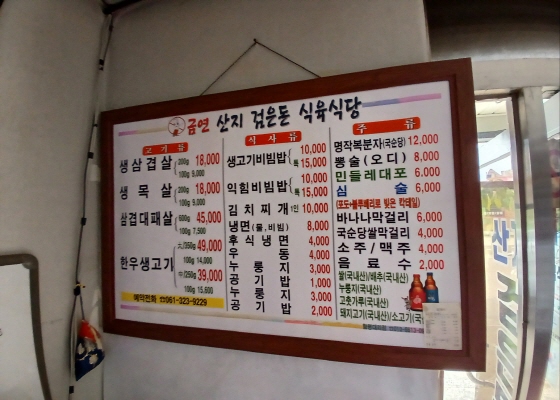 금연 산지 검은돈 식육식당
고기류
생삼겹살 200g 18,000
100g 9,000
생목살 200g 18,000
100g 9,000
삼겹대패살 600g 45,000
100g 7,500
한우생고기 大/350g 49,000
100g 14,000
中/250g 39,000
100g 15,600
예약전화 ☎061-323-9229
식사류
생고기비빔밥 10,000
특 15,000
익힘비빔밥 10,000
특 15,000
김치찌개 1인 10,000
냉면(물,비빔) 8,000
후식냉면 4,000
우동 4,000
누룽지 3,000
공기밥 1,000
누룽지 3,000
공기밥 2,000
주류
명작복분자(국순당) 12,000
뽕술(오디) 8,000
민들레대포 6,000
심술 6,000
(포도+블루베리로 빚은 칵테일)
바나나막걸리 6,000
국순당쌀막걸리 4,000
소주/맥주 4,000
음료수 2,000
쌀(국내산)/배추(국내산)
누룽지(국내산)
고춧가루(국내산)
돼지고기(국내산)/소고기(국